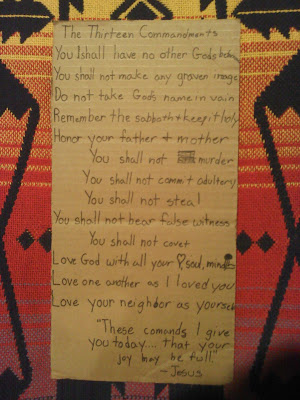 The Thirteen Commandments
You shall have no other Gods
You shall not make any graven image
Do not take Gods name in vain
Remember the sabbath & keep it holy
Honor your father & mother
You shall not murder
You shall not commit adultery
You shall not steal
You shall not bear false witness
You shall not covet
Love God with all your ♡ soul, mind
Love one another as I loved you
Love your neighbor as yourself
"These comands I give
you today.... that your
joy may be full."
- Jesus